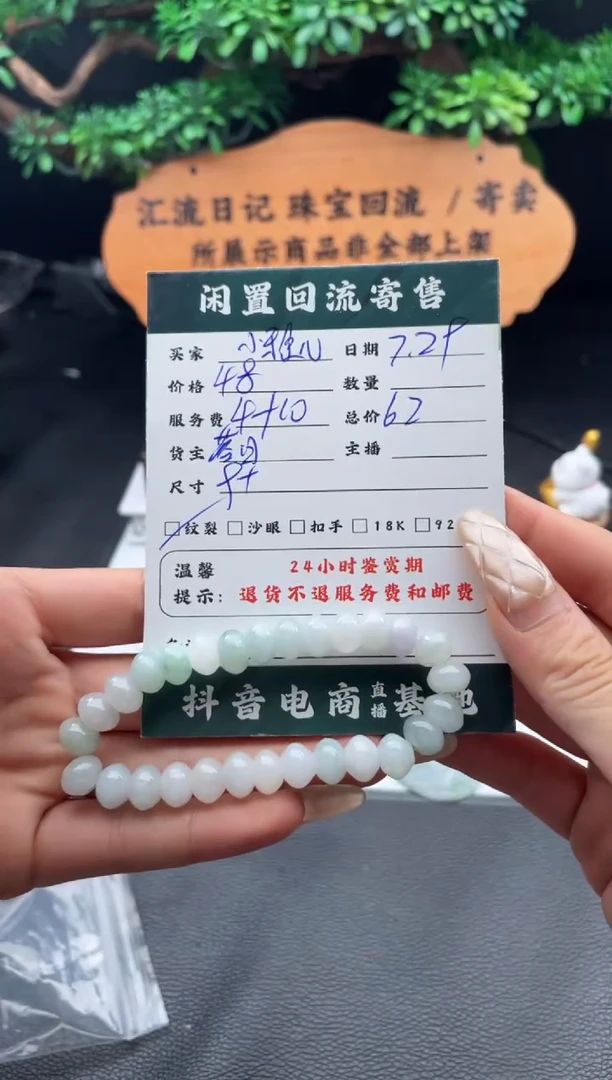 汇流日记 珠宝回流 / 寄卖
所展示商品非全部上架
闲置回流寄售
买家 小雅儿 日期 7.29
价格 48 数量
服务费 4+10 总价 62
货主 主播
尺寸
□纹裂 □沙眼 □扣手 □18K □92
温馨 24小时鉴赏期
提示: 退货不退服务费和邮费
抖音电商直播基地